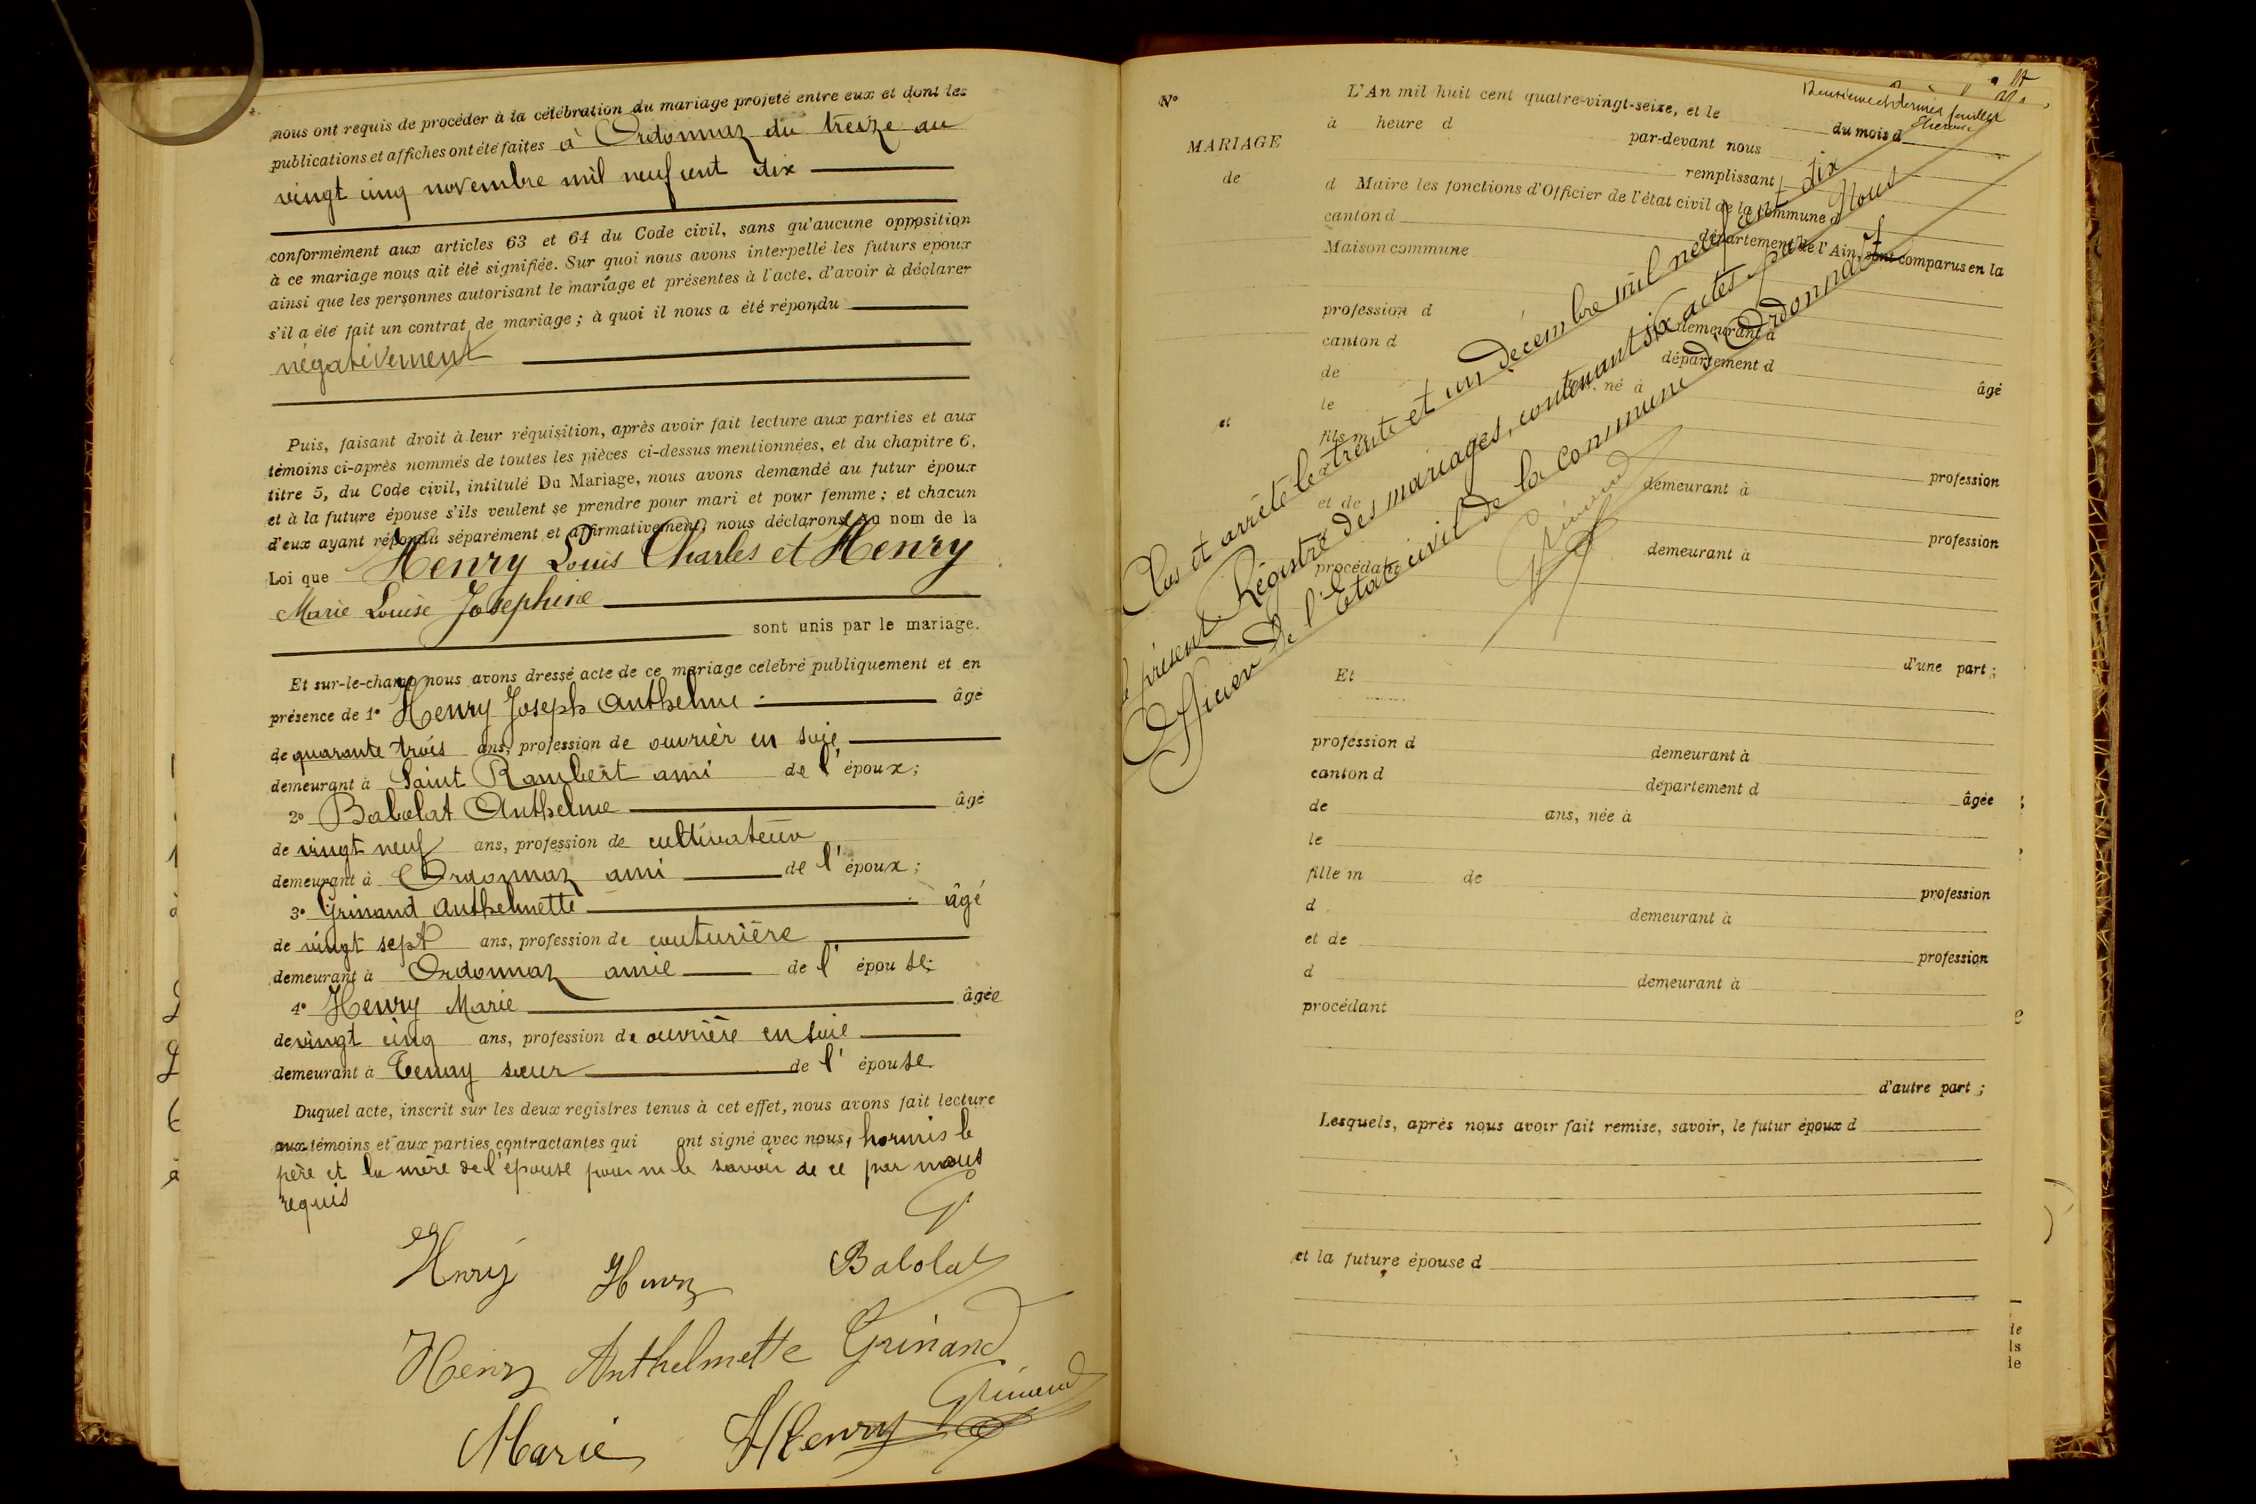 nous ont requis de procéder à la célébration du mariage projeté entre eux et dont les
publications et affiches ont été faites à Ordonnaz du treize au
vingt cinq novembre mil neuf cent dix
conformément aux articles 63 et 64 du Code civil, sans qu'aucune opposition
à ce mariage nous ait été signifiée. Sur quoi nous avons interpellé les futurs époux
ainsi que les personnes autorisant le mariage et présentes à l'acte, d'avoir à déclarer
s'il a été fait un contrat de mariage ; à quoi il nous a été répondu
négativement
Puis, faisant droit à leur réquisition, après avoir fait lecture aux parties et aux
témoins ci-après nommés de toutes les pièces ci-dessus mentionnées, et du chapitre 6,
titre 5, du Code civil, intitulé Du Mariage, nous avons demandé au futur époux
et à la future épouse s'ils veulent se prendre pour mari et pour femme ; et chacun
d'eux ayant répondu séparément et affirmativement, nous déclarons au nom de la
Loi que Henry Louis Charles et Henry
Marie Louise Joséphine
sont unis par le mariage.
Et sur-le-champ nous avons dressé acte de ce mariage célébré publiquement et en
présence de 1° Henry Joseph Anthelme âgé
de quarante trois ans, profession de ouvrier en soie
demeurant à Saint Rambert ami de l'époux ;
2° Babolat Anthelme âgé
de vingt neuf ans, profession de cultivateur
demeurant à Ordonnaz ami de l'époux ;
3° Grinand Anthelmette âgé
de vingt sept ans, profession de couturière
demeurant à Ordonnaz amie de l'épouse
4° Henry Marie âgée
de vingt cinq ans, profession de ouvrière en soie
demeurant à Tenay sœur de l'épouse
Duquel acte, inscrit sur les deux registres tenus à cet effet, nous avons fait lecture
aux témoins et aux parties contractantes qui ont signé avec nous, hormis le
père et la mère de l'épouse pour ne le savoir de ce par nous
requis
Henry Henry Babolat
Henry Anthelmette Grinand
Grinand
Marie Henry
N°
MARIAGE
de
et
L'An mil huit cent quatre-vingt-seize, et le du mois d
à heure d par-devant nous
remplissant
d Maire les fonctions d'Officier de l'état civil de la commune d
canton d département de l'Ain, sont comparus en la
Maison commune
profession d demeurant à
canton d département d
de ans, né à âgé
le
fils m
profession
demeurant à
et de profession
demeurant à
procédant
d'une part ;
Clos et arrêté le trente et un décembre mil neuf cent dix
le présent Régistre des mariages, contenant six actes par Nous
Officier de l'Etat civil de la commune d'Ordonnaz
Grinand
Et
profession d demeurant à
canton d département d
de ans, née à âgée
le
fille m de
d demeurant à profession
et de
d demeurant à profession
procédant
d'autre part ;
Lesquels, après nous avoir fait remise, savoir, le futur époux d
et la future épouse d